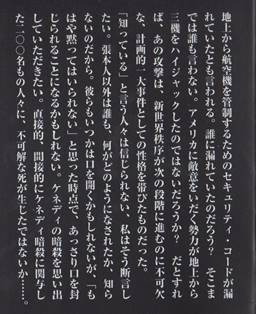 地上から航空機を管制するためのセキュリティ・コードが漏
れていたとも言われる。誰に漏れていたのだろう? そこま
では誰も言わない。アメリカに敵意をいだく勢力が地上から
三機をハイジャックしたのではないだろうか? だとすれ
ば、あの攻撃は、新世界秩序が次の段階に進むのに不可欠
な、計画的一大事件としての性格を帯びたものだった。
「知っている」と言う人々は信じられない、私はそう断言し
たい。張本人以外は誰も、何がどのようになされたか、知ら
ないのだから。彼らもいつかは口を開くかもしれないが、「も
はや黙ってはいられない」と思った時点で、あっさり口を封
じられることになるかもしれない。ケネディの暗殺を思い出
していただきたい。直接的、間接的にケネディ暗殺に関与し
た二〇〇名もの人々に、不可解な死が生じたではないか……。